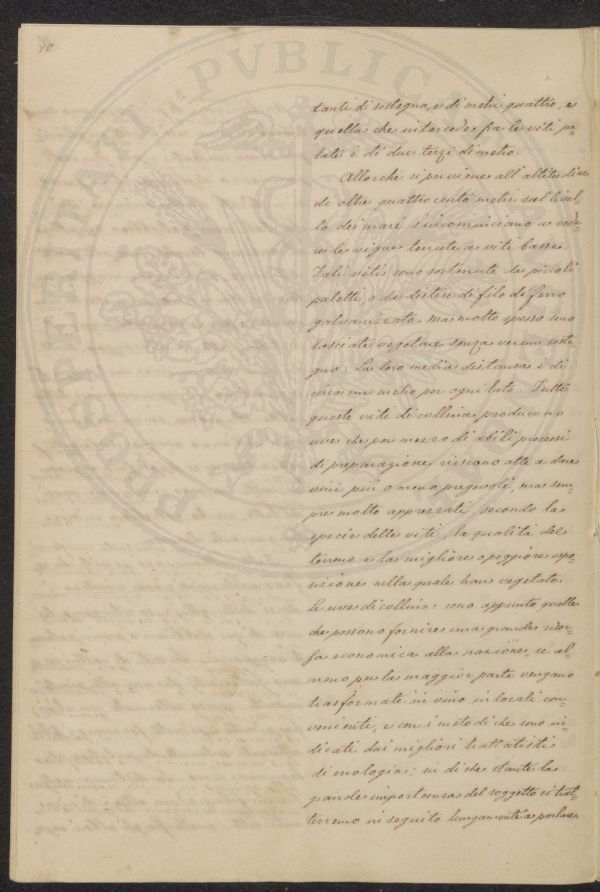 10
tanti di sostegno, e di metri quattro, e
quella che intercede fra le viti pe-
lati è di due terzi di metro.
Allorchè si perviene all'altitudine
di oltre quattrocento metri sul livel-
lo dei mari s'incominciano a vede-
re le vigne tenute a viti basse.
Tali viti sono sostenute da piccoli
paletti, o da distese di filo di ferro
galvanizzato. ma molto spesso sono
lasciate vegetare senza verun soste-
gno. La loro media distanza è di
circa un metro per ogni lato. Tutte
queste viti di collina producono
uve che per mezzo di abili processi
di preparazione, riescono atte a dare
vini più o meno pregevoli, ma sem-
pre molto apprezzati, secondo la
specie delle viti, la qualità del
terreno e la migliore o peggiore espo-
sizione nella quale han vegetato.
Le uve di collina sono appunto quelle
che possono fornire una grande risor-
sa economica alla nazione, se al-
meno per la maggior parte vengano
trasformate in vino in locali con-
venienti, e con i metodi che sono in-
dicati dai migliori trattatisti
di enologia; su di che stante la
grande importanza del soggetto ci trat-
terremo in seguito lungamente a parlare
PVBLICA